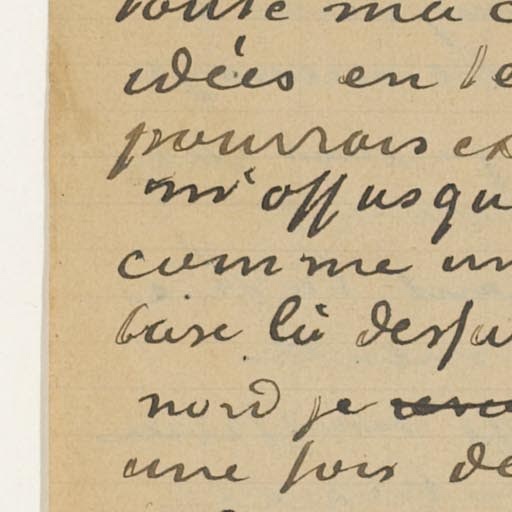 toute ma c
idées en le
pourrais ex
m'offusqu
comme un
baise là dessu
nord je
une fois de